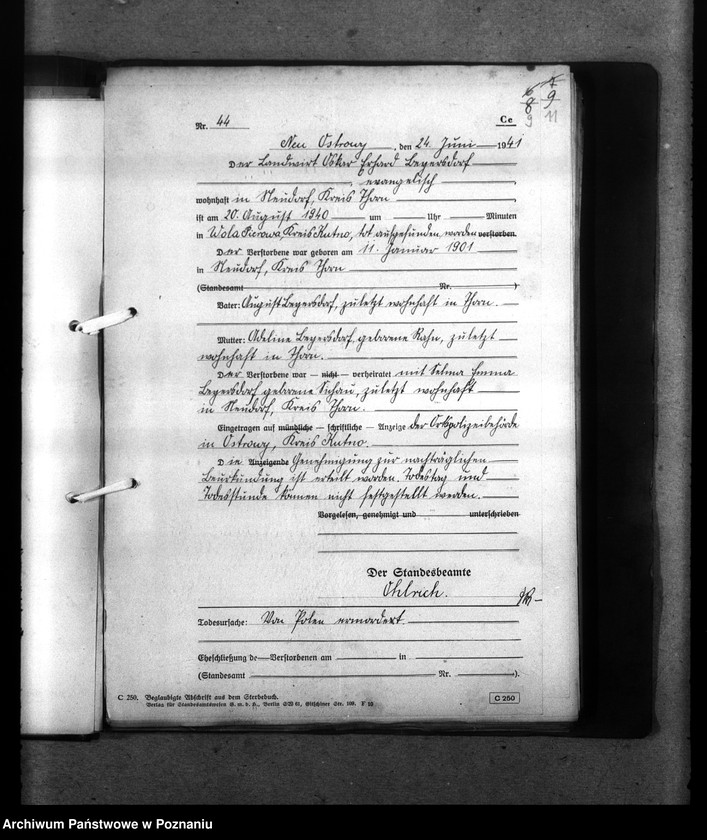 6 7
8 9
9 11
Nr. 44 Ce
Neu Ostrowy, den 24. Juni 1941
Der Landwirt Oskar Erhard Beyersdorf
, evangelisch,
wohnhaft in Neudorf, Kreis Thorn,
ist am 20. August 1940 um Uhr Minuten
in Wola Pierowa, Kreis Kutno, tot aufgefunden worden verstorben.
Der Verstorbene war geboren am 11. Januar 1901
in Neudorf, Kreis Thorn
(Standesamt Nr. )
Vater: August Beyersdorf, zuletzt wohnhaft in Thorn.
Mutter: Adeline Beyersdorf, geborene Rahn, zuletzt
wohnhaft in Thorn.
Der Verstorbene war — nicht — verheiratet mit Selma Emma
Beyersdorf geborene, zuletzt wohnhaft
in Neudorf, Kreis Thorn.
Eingetragen auf mündliche — schriftliche — Anzeige der Ortspolizeibehörde
in Ostrowy, Kreis Kutno.
Die Anzeigende Genehmigung zur nachträglichen
Beurkundung ist erteilt worden. Todestag und
Todesstunde können nicht festgestellt werden.
Vorgelesen, genehmigt und unterschrieben
Der Standesbeamte
Ohlrich.
Todesursache: Von Polen ermordert
Eheschließung de Verstorbenen am in
(Standesamt Nr. ).
C 250. Beglaubigte Abschrift aus dem Sterbebuch.
Verlag für Standesamtswesen G. m. b. H., Berlin SW 61, Gitschiner Str. 109. F 13
C 250
Archiwum Państwowe w Poznaniu